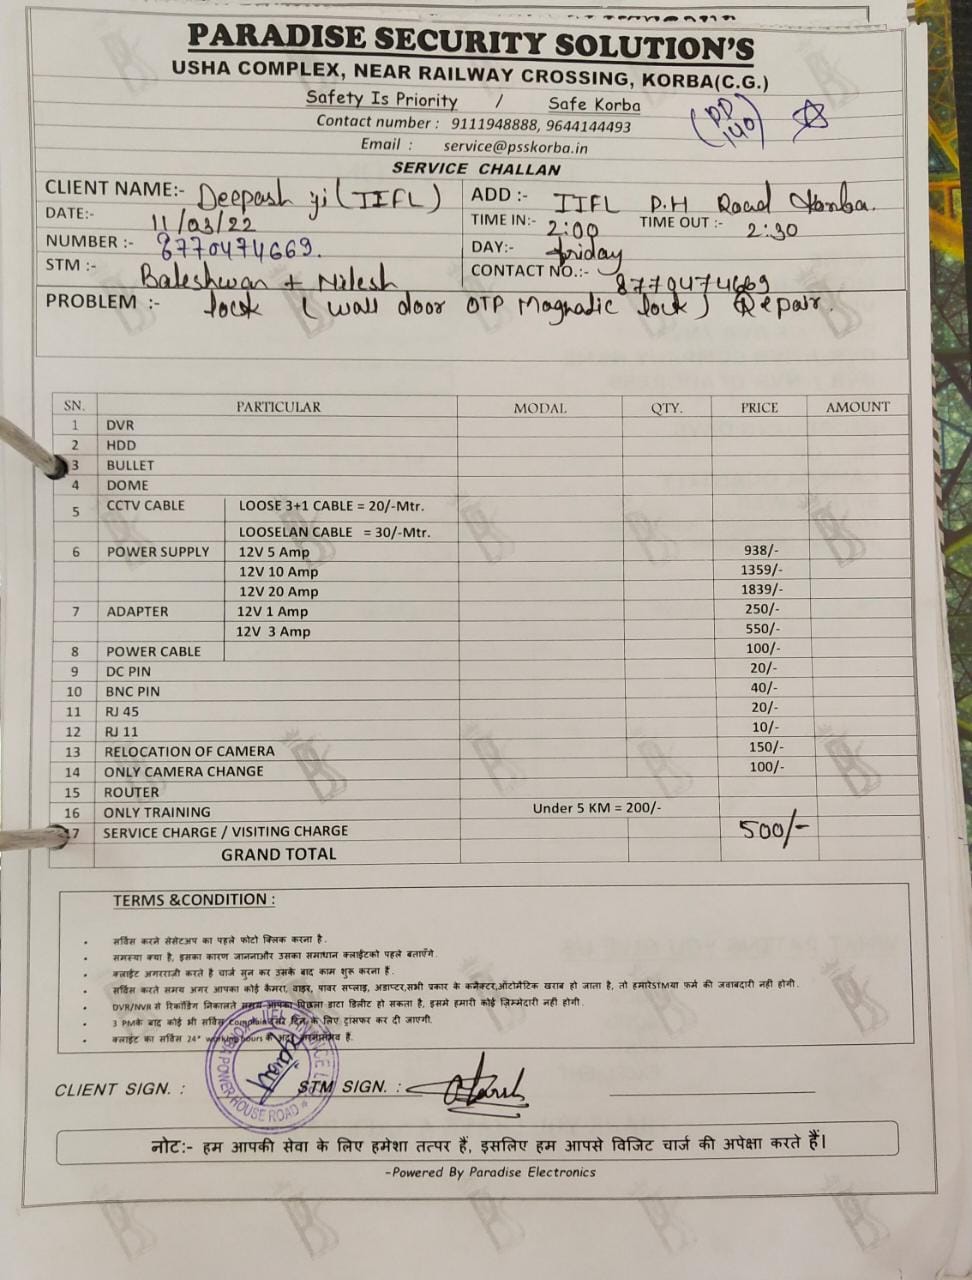 PARADISE SECURITY SOLUTION'S
USHA COMPLEX, NEAR RAILWAY CROSSING, KORBA(C.G.)
Safety Is Priority / Safe Korba
Contact number : 9111948888, 9644144493
(PD 140)
Email : service@psskorba.in
SERVICE CHALLAN
CLIENT NAME:- Deepash ji (IIFL) ADD :- IIFL P.H Road Korba.
DATE:- 11/03/22 TIME IN:- 2:00 TIME OUT :- 2:30
NUMBER :- 8770474669. DAY:- friday
STM :- Baleshwar + Nilesh CONTACT NO.:- 8770474669
PROBLEM :- lock (wall door OTP Magnadic lock) Repair.
SN. PARTICULAR MODAL QTY. PRICE AMOUNT
1 DVR
2 HDD
3 BULLET
4 DOME
5 CCTV CABLE LOOSE 3+1 CABLE = 20/-Mtr.
LOOSELAN CABLE = 30/-Mtr.
6 POWER SUPPLY 12V 5 Amp 938/-
12V 10 Amp 1359/-
12V 20 Amp 1839/-
7 ADAPTER 12V 1 Amp 250/-
12V 3 Amp 550/-
8 POWER CABLE 100/-
9 DC PIN 20/-
10 BNC PIN 40/-
11 RJ 45 20/-
12 RJ 11 10/-
13 RELOCATION OF CAMERA 150/-
14 ONLY CAMERA CHANGE 100/-
15 ROUTER
16 ONLY TRAINING Under 5 KM = 200/-
17 SERVICE CHARGE / VISITING CHARGE 500/-
GRAND TOTAL
TERMS &CONDITION :
• सर्विस करने सेसेटअप का पहले फोटो क्लिक करना है .
• समस्या क्या है, इसका कारण जाननाऔर उसका समाधान क्लाईटको पहले बताएँगे.
• क्लाईट अगरराज़ी करते है चार्ज सुन कर उसके बाद काम शुरू करना है .
• सर्विस करते समय अगर आपका कोई कैमरा, वाइर, पावर सप्लाइ, अडाप्टर,सभी प्रकार के कनैक्टर,ऑटोमैटिक खराब हो जाता है, तो हमारेSTMया फर्म की जवाबदारी नहीं होगी.
• DVR/NVR से रिकॉर्डिंग निकालते समय आपका पिछला डाटा डिलीट हो सकता है, इसमे हमारी कोई ज़िम्मेदारी नहीं होगी.
• 3 PMके बाद कोई भी सर्विस Complain दूसरे दिन के लिए ट्रांसफर कर दी जाएगी.
• क्लाईट का सर्विस 24* working hours के अंदर है.
KORBA POWER HOUSE ROAD
CLIENT SIGN. : STM SIGN. :
नोट:- हम आपकी सेवा के लिए हमेशा तत्पर हैं, इसलिए हम आपसे विजिट चार्ज की अपेक्षा करते हैं।
-Powered By Paradise Electronics